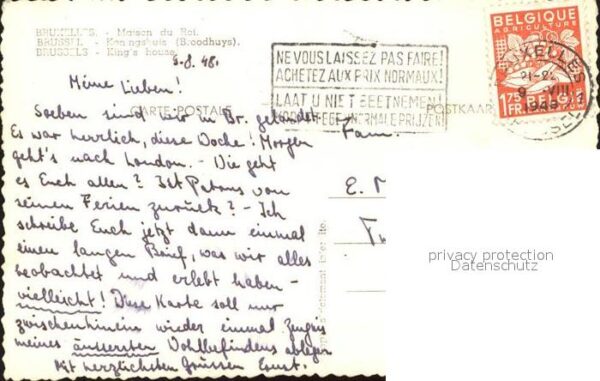 BRUXELLES. - Maison du Roi.
BRUSSEL. - Koningshuis (Broodhuys).
BRUSSELS - King's house.
9.8.48.
Meine Lieben!
CARTE POSTALE
POSTKAART
Soeben sind wir in Br. gelandet.
Es war herrlich, diese Woche! Morgen
geht's nach London. - Wie geht
es Euch allen? Ist Petrus von
seinen Ferien zurück? - Ich
schreibe Euch jetzt dann einmal
einen langen Brief, was wir alles
beobachtet und erlebt haben -
vielleicht! Diese Karte soll nur
zwischenhinein wieder einmal Zeugnis
meines äussersten Wohlbefindens ablegen
Mit herzlichsten Grüssen Ernst.
NE VOUS LAISSEZ PAS FAIRE!
ACHETEZ AUX PRIX NORMAUX!
LAAT U NIET BEETNEMEN!
KOOPT TEGEN NORMALE PRIJZEN!
BELGIQUE
AGRICULTURE
1.75
FR.
BELGIË
BRUXELLES
BRUSSEL
9 VIII
1948
Fam.
E.
privacy protection
Datenschutz